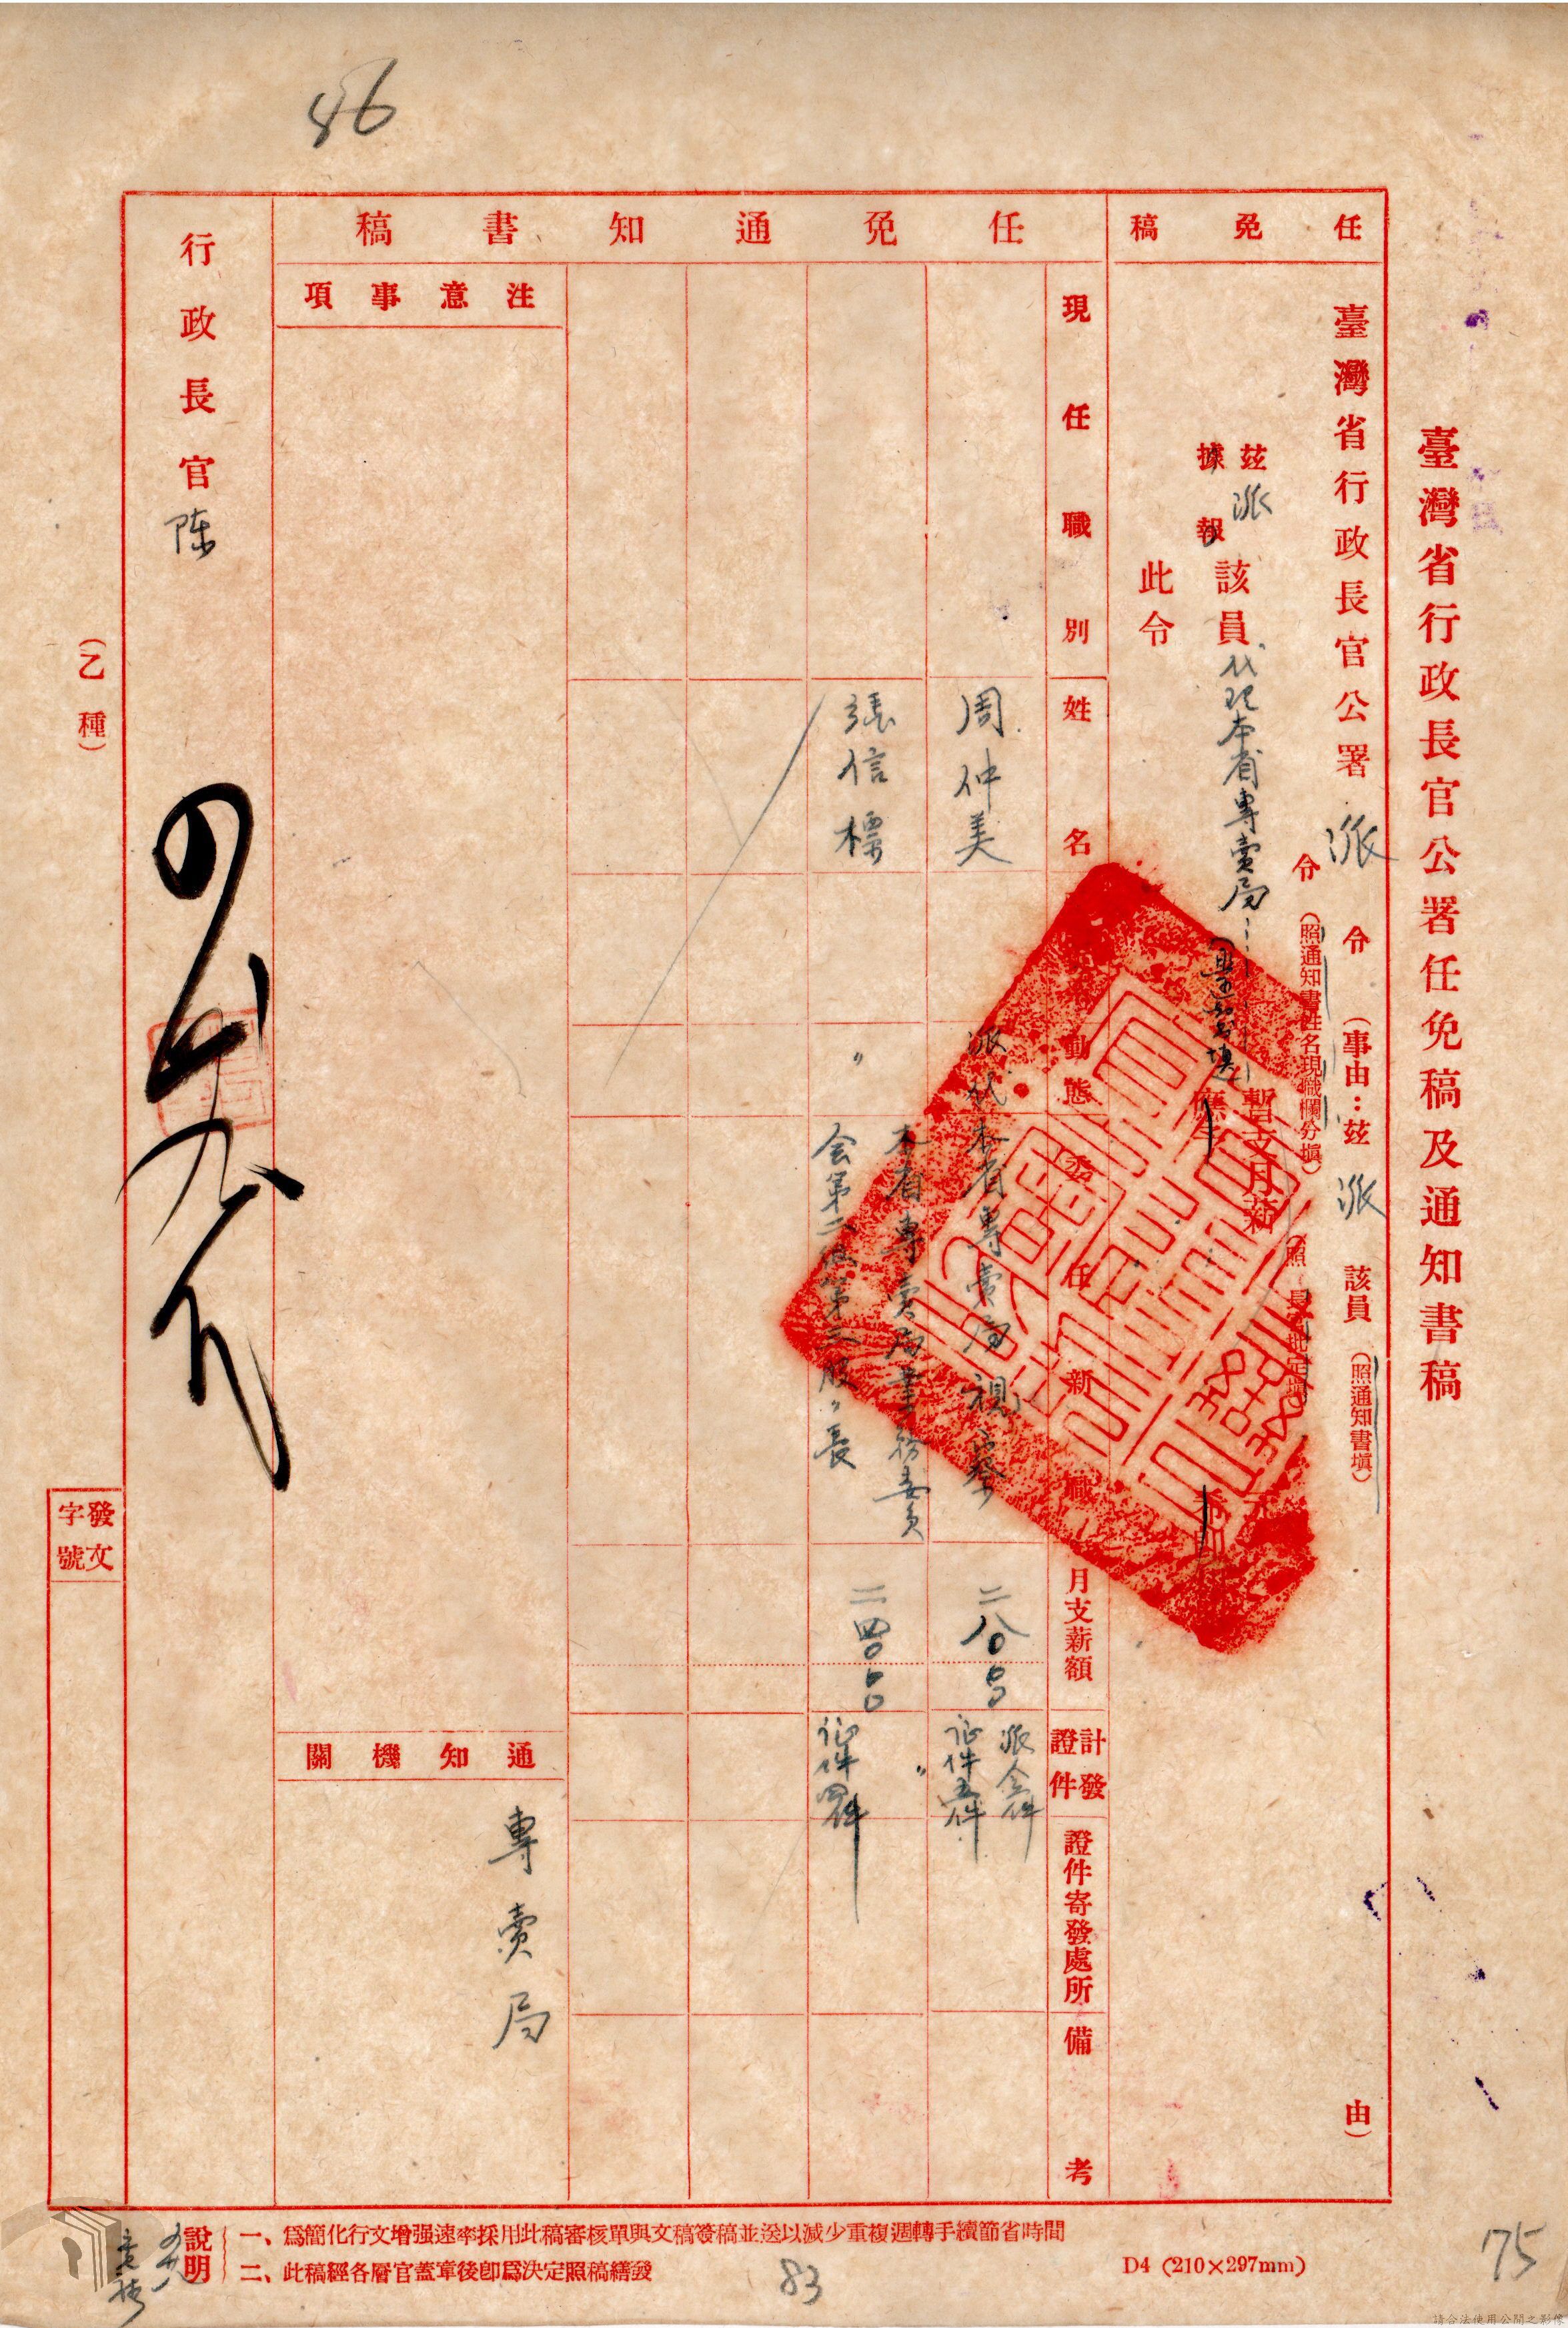 86
臺灣省行政長官公署任免稿及通知書稿
任免稿
臺灣省行政長官公署派令（事由：茲派該員（照通知書填）由）
令（照通知書姓名現職欄分填）
茲派
據報
該員代理本省專賣局……
暫支月薪
此令
任免通知書稿
現任職別
姓名
動態
新任
職
月支薪額
計發證件
證件寄發處所
備考
周仲美
派代
本省專賣局視察
二八〇
〇〇
派令一件
証件五件
張信標
〃
本省專賣局業務委員
会第二組第三股〃長
二四〇
〇〇
〃
証件四件
注意事項
通知機關
專賣局
行政長官陳
（乙種）
發文字號
說明
一、爲簡化行文增强速率採用此稿審核單與文稿簽稿並送以減少重複週轉手續節省時間
二、此稿經各層官蓋章後卽爲決定照稿繕發
83
D4 (210×297mm)
75
請合法使用公開之影像